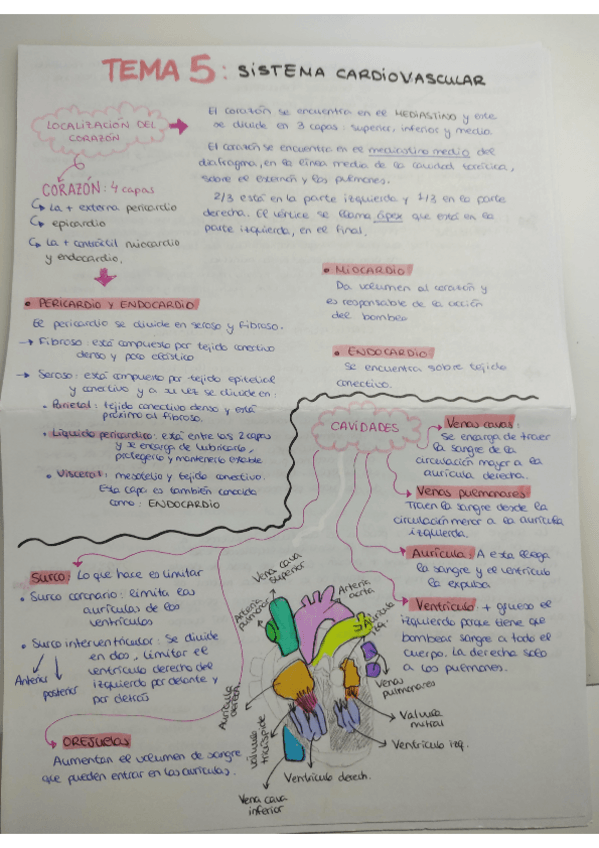 TEMA 5: SISTEMA CARDIOVASCULAR
LOCALIZACIÓN DEL
CORAZÓN
El corazón se encuentra en el MEDIASTINO y este
se divide en 3 capas: superior, inferior y medio.
El corazón se encuentra en el mediastino medio del
diafragma, en la línea media de la cavidad torácica,
sobre el esternón y los pulmones.
2/3 está en la parte izquierda y 1/3 en la parte
derecha. El vértice se llama ápex que está en la
parte izquierda, en el final.
CORAZÓN: 4 capas
La + externa pericardio
epicardio
La + contráctil miocardio
y endocardio.
• PERICARDIO Y ENDOCARDIO
El pericardio se divide en seroso y fibroso.
→ Fibroso: está compuesto por tejido conectivo
denso y poco elástico
→ Seroso: está compuesto por tejido epitelial
y conectivo y a su vez se divide en:
• Parietal: tejido conectivo denso y está
próximo al fibroso.
• Líquido pericárdico: está entre las 2 capas
y se encarga de lubricarlo,
protegerlo y mantenerlo estable
• Visceral: mesotelio y tejido conectivo.
Esta capa es también conocida
como: ENDOCARDIO
• MIOCARDIO
Da volumen al corazón y
es responsable de la acción
del bombeo
• ENDOCARDIO:
Se encuentra sobre tejido
conectivo.
CAVIDADES
Venas cavas:
Se encarga de traer
la sangre de la
circulación mayor a la
aurícula derecha.
Venas pulmonares:
Traen la sangre desde la
circulación menor a la aurícula
izquierda.
Aurícula: A esta llega
la sangre y el ventrículo
la expulsa.
Ventrículo: + grueso el
izquierdo porque tiene que
bombear sangre a todo el
cuerpo. La derecha solo
a los pulmones.
Surco: Lo que hace es limitar
• Surco coronario: limita las
aurículas de los
ventrículos
• Surco interventricular: Se divide
en dos, limitar el
ventrículo derecho del
izquierdo por delante y
por detrás
Anterior
posterior
OREJUELAS
Aumentan el volumen de sangre
que pueden entrar en las aurículas.
Vena cava
superior
Arteria
pulmonar
Arteria
aorta
Aurícula
izq.
Venas
pulmonares
Valvula
mitral
Ventrículo izq.
Aurícula
derech.
Válvula
tricúspide
Ventrículo derech.
Vena cava
inferior